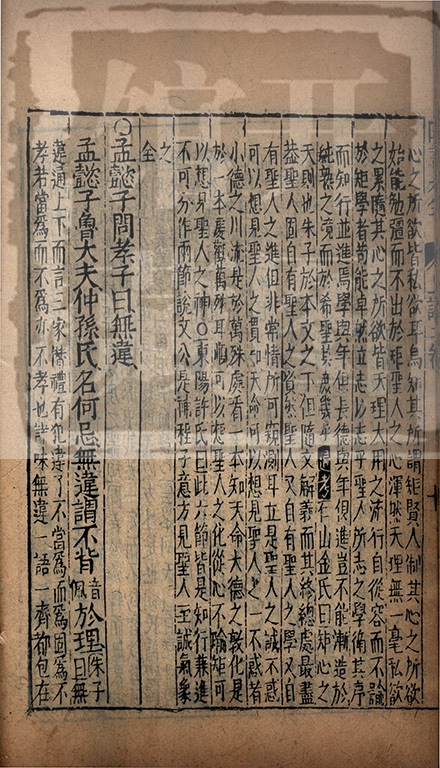 心之所欲皆私欲耳烏知其所謂矩賢人制其心之所欲
始能勉彊而不出於矩聖人之心渾然天理無一毫私欲
之累隨其心之所欲皆天理大用之流行自從容而不踰
於矩學者苟能卓然立志以志乎聖人所志之學循其序
而知行並進焉學與年俱長德與年俱進豈不能漸造於
純熟之境而於希聖其庶幾乎 通考仁山金氏曰矩心之
天則也朱子於本文之下但隨文解義而其終總處最盡
益聖人固自有聖人之資然聖人又自有聖人之學又自
有聖人之進但非常情所可窺測耳立是聖人之誠不惑
可以想見聖人之貫知天命可以想見聖人之一不惑者
小德之川流是於萬殊處看一本知天命大德之敦化是
於一本處觀萬殊耳順可以想聖人之化從心不踰矩可
以想見聖人之神○東陽許氏曰此六節皆是知行兼進
不可分作兩節說文公是補程子意方見聖人至誠氣象
之全
○孟懿子問孝子曰無違
孟懿子魯大夫仲孫氏名何忌無違謂不背音佩於理朱子曰無
違通上下而言三家僭禮有犯違了不當為而為固為不
孝若當為而不為亦不孝也詳味無違一語一齊都包在